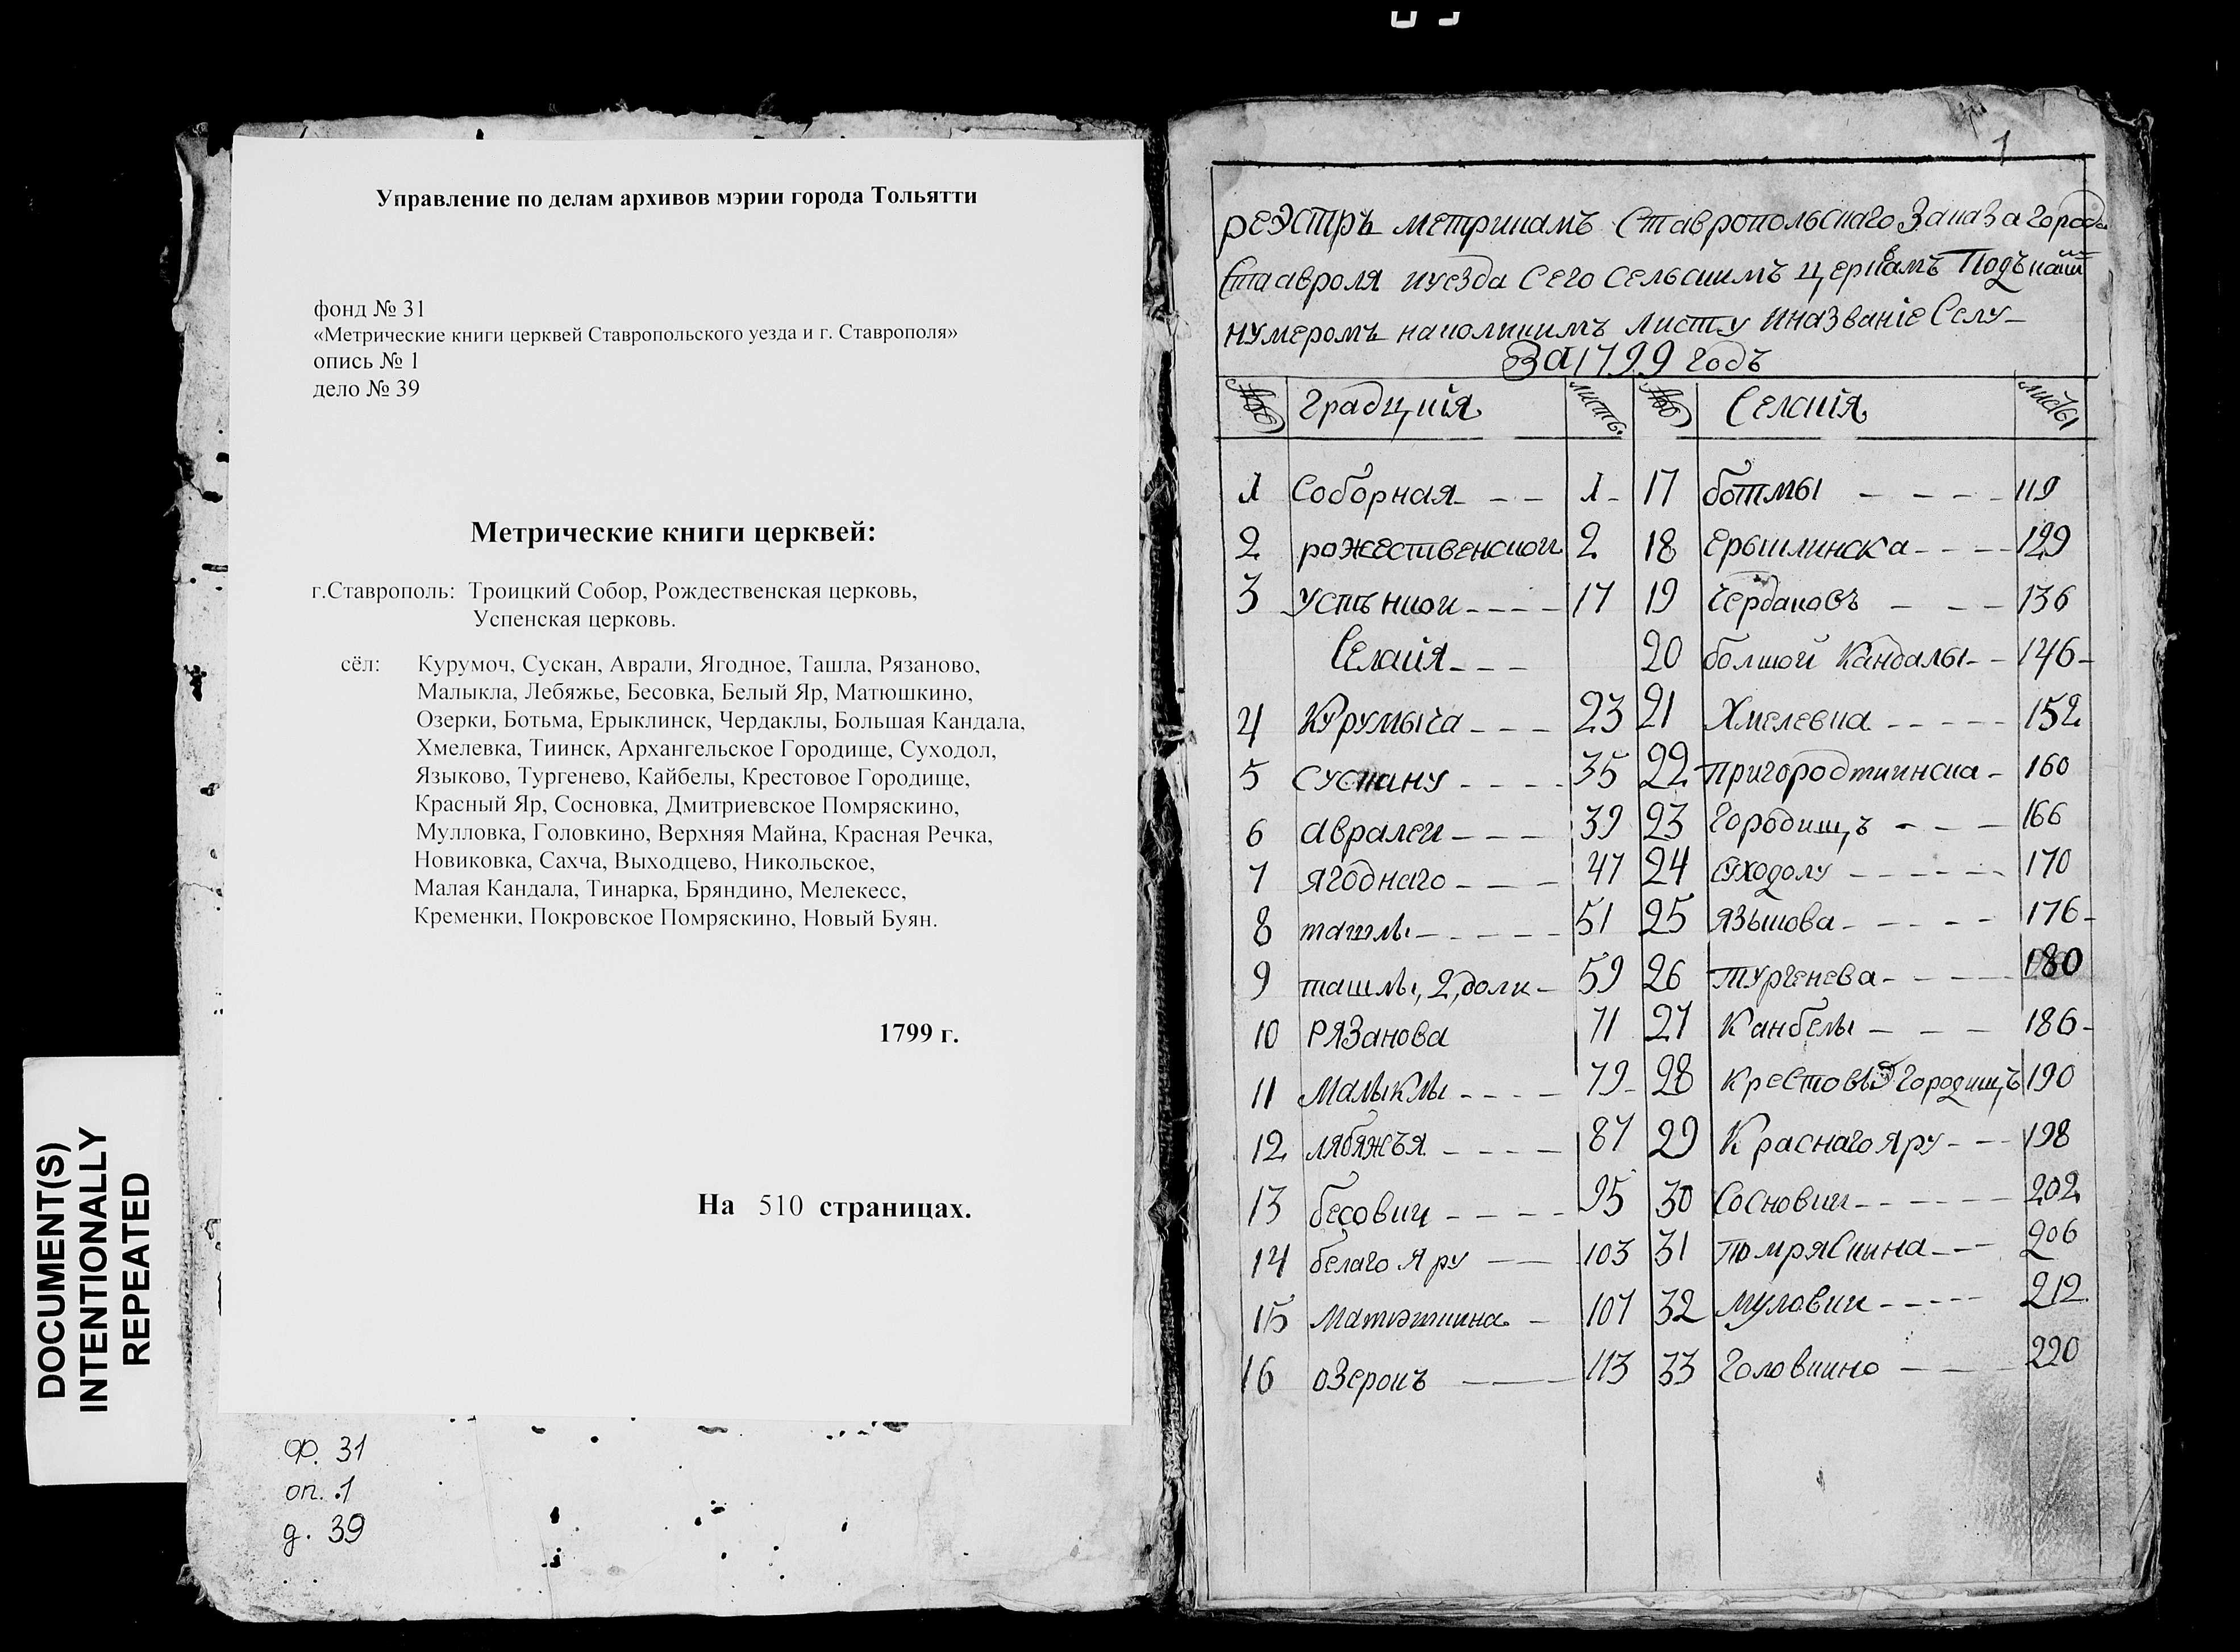 DOCUMENT(S)
INTENTIONALLY
REPEATED
Управление по делам архивов мэрии города Тольятти
фонд № 31
«Метрические книги церквей Ставропольского уезда и г. Ставрополя»
опись № 1
дело № 39
Метрические книги церквей:
г.Ставрополь: Троицкий Собор, Рождественская церковь,
Успенская церковь.
сёл: Курумоч, Сускан, Аврали, Ягодное, Ташла, Рязаново,
Малыкла, Лебяжье, Бесовка, Белый Яр, Матюшкино,
Озерки, Ботьма, Ерыклинск, Чердаклы, Большая Кандала,
Хмелевка, Тиинск, Архангельское Городище, Суходол,
Языково, Тургенево, Кайбелы, Крестовое Городище,
Красный Яр, Сосновка, Дмитриевское Помряскино,
Мулловка, Головкино, Верхняя Майна, Красная Речка,
Новиковка, Сахча, Выходцево, Никольское,
Малая Кандала, Тинарка, Бряндино, Мелекесс,
Кременки, Покровское Помряскино, Новый Буян.
1799 г.
На 510 страницах.
ф. 31
оп. 1
д. 39
1
реэстръ метрикамъ Ставропольскаго Заказа города
Ставроля иуезда Сего Сельскимъ церквамъ Подъ каки
нумеромъ наколикимъ листу Иназваніе Селу
За 1799 годъ
№ Градцкія листъ № Селскія листы
1 Соборная 1 17 ботмы 119
2 рожественской 2 18 ерыклинска 129
3 Успѣнкои 17 19 Чердаковъ 136
Селския 20 болшой Кандалы 146
4 Курумыча 23 21 Хмелевка 152
5 Сускану 35 22 пригородтиинска 160
6 авралеи 39 23 Городищъ 166
7 ягоднаго 47 24 суходолу 170
8 ташлы 51 25 языкова 176
9 ташлы, 2, доли 59 26 тургенева 180
10 Рязанова 71 27 Канбелы 186
11 Малыклы 79 28 Крестовы Городищъ 190
12 лябяжъя 87 29 Краснаго яру 198
13 бесовки 95 30 Сосновки 202
14 белаго Яру 103 31 помряскина 206
15 Матюшкина 107 32 муловки 212
16 озерокъ 113 33 Головкино 220